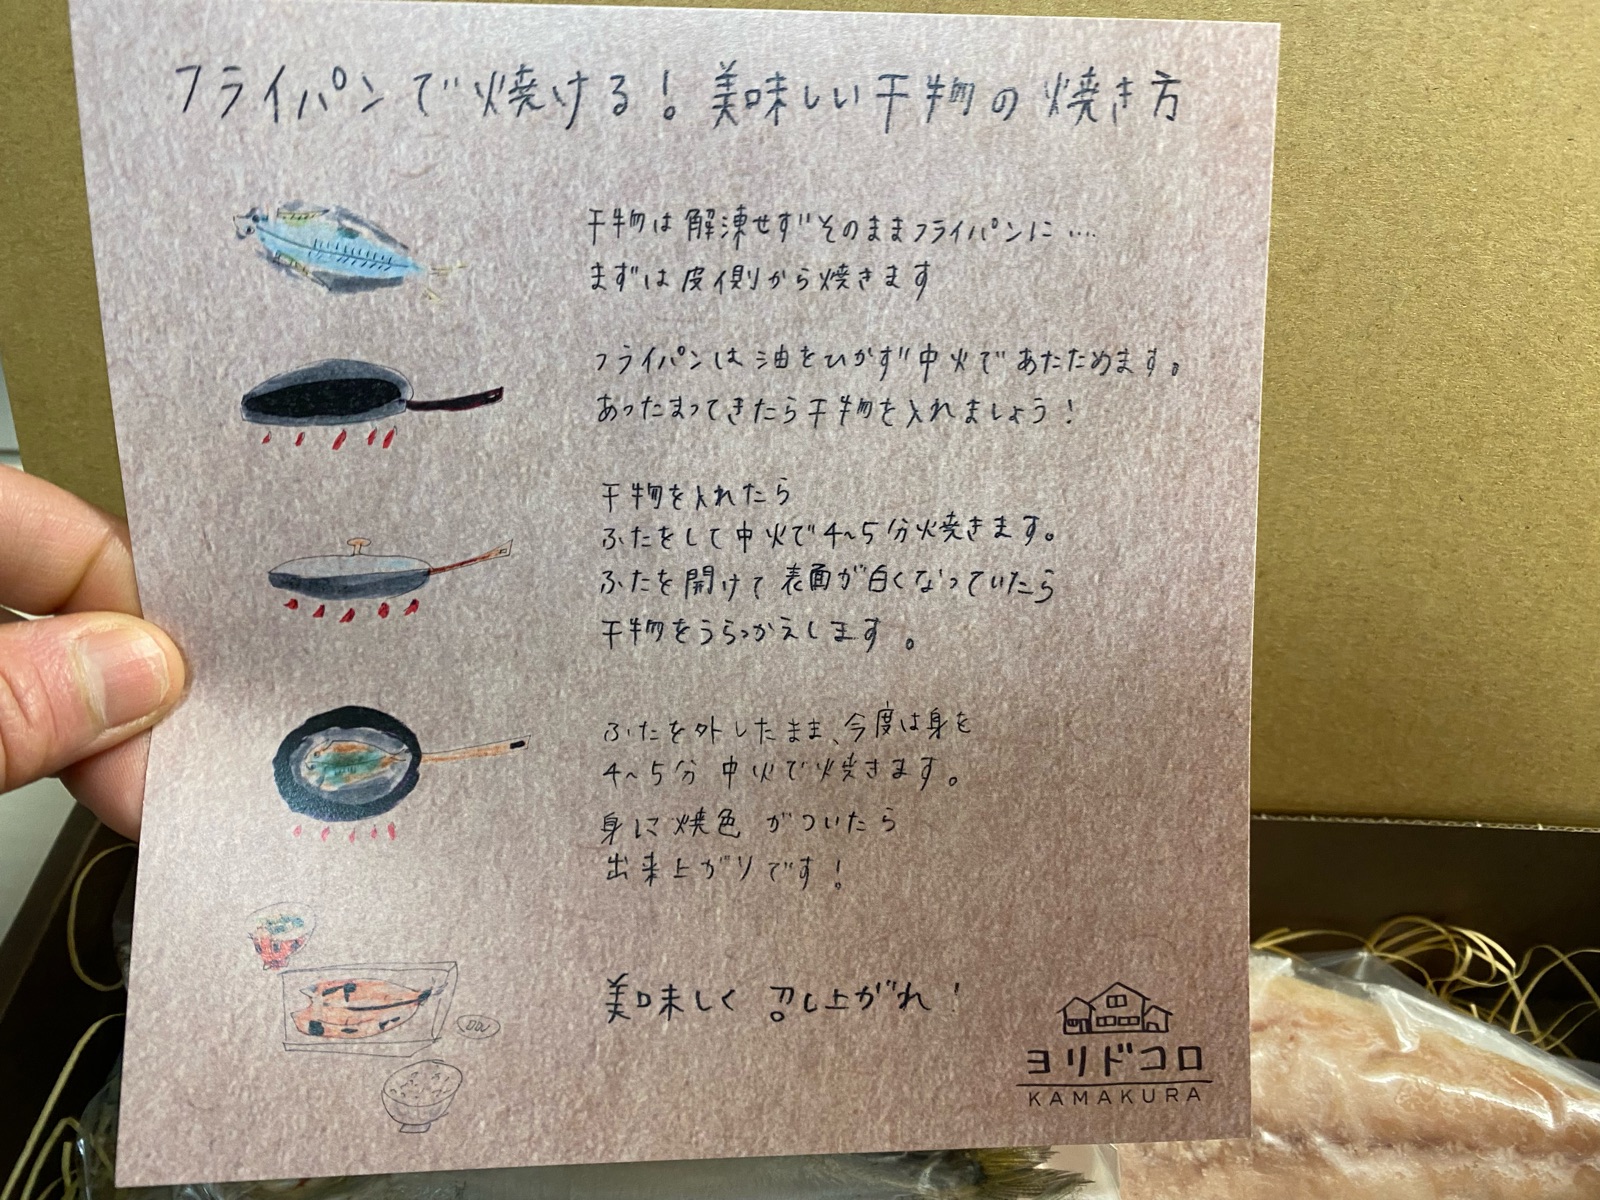 フライパンで焼ける！美味しい干物の焼き方
干物は解凍せずそのままフライパンに....
まずは皮側から焼きます
フライパンは油をひかず中火であたためます。
あったまってきたら干物を入れましょう！
干物を入れたら
ふたをして中火で4~5分火焼きます。
ふたを開けて表面が白くなっていたら
干物をうらっかえします。
ふたを外したまま、今度は身を
4~5分中火で焼きます。
身に焼色がついたら
出来上がりです！
美味しく召し上がれ！
ヨリドコロ
KAMAKURA